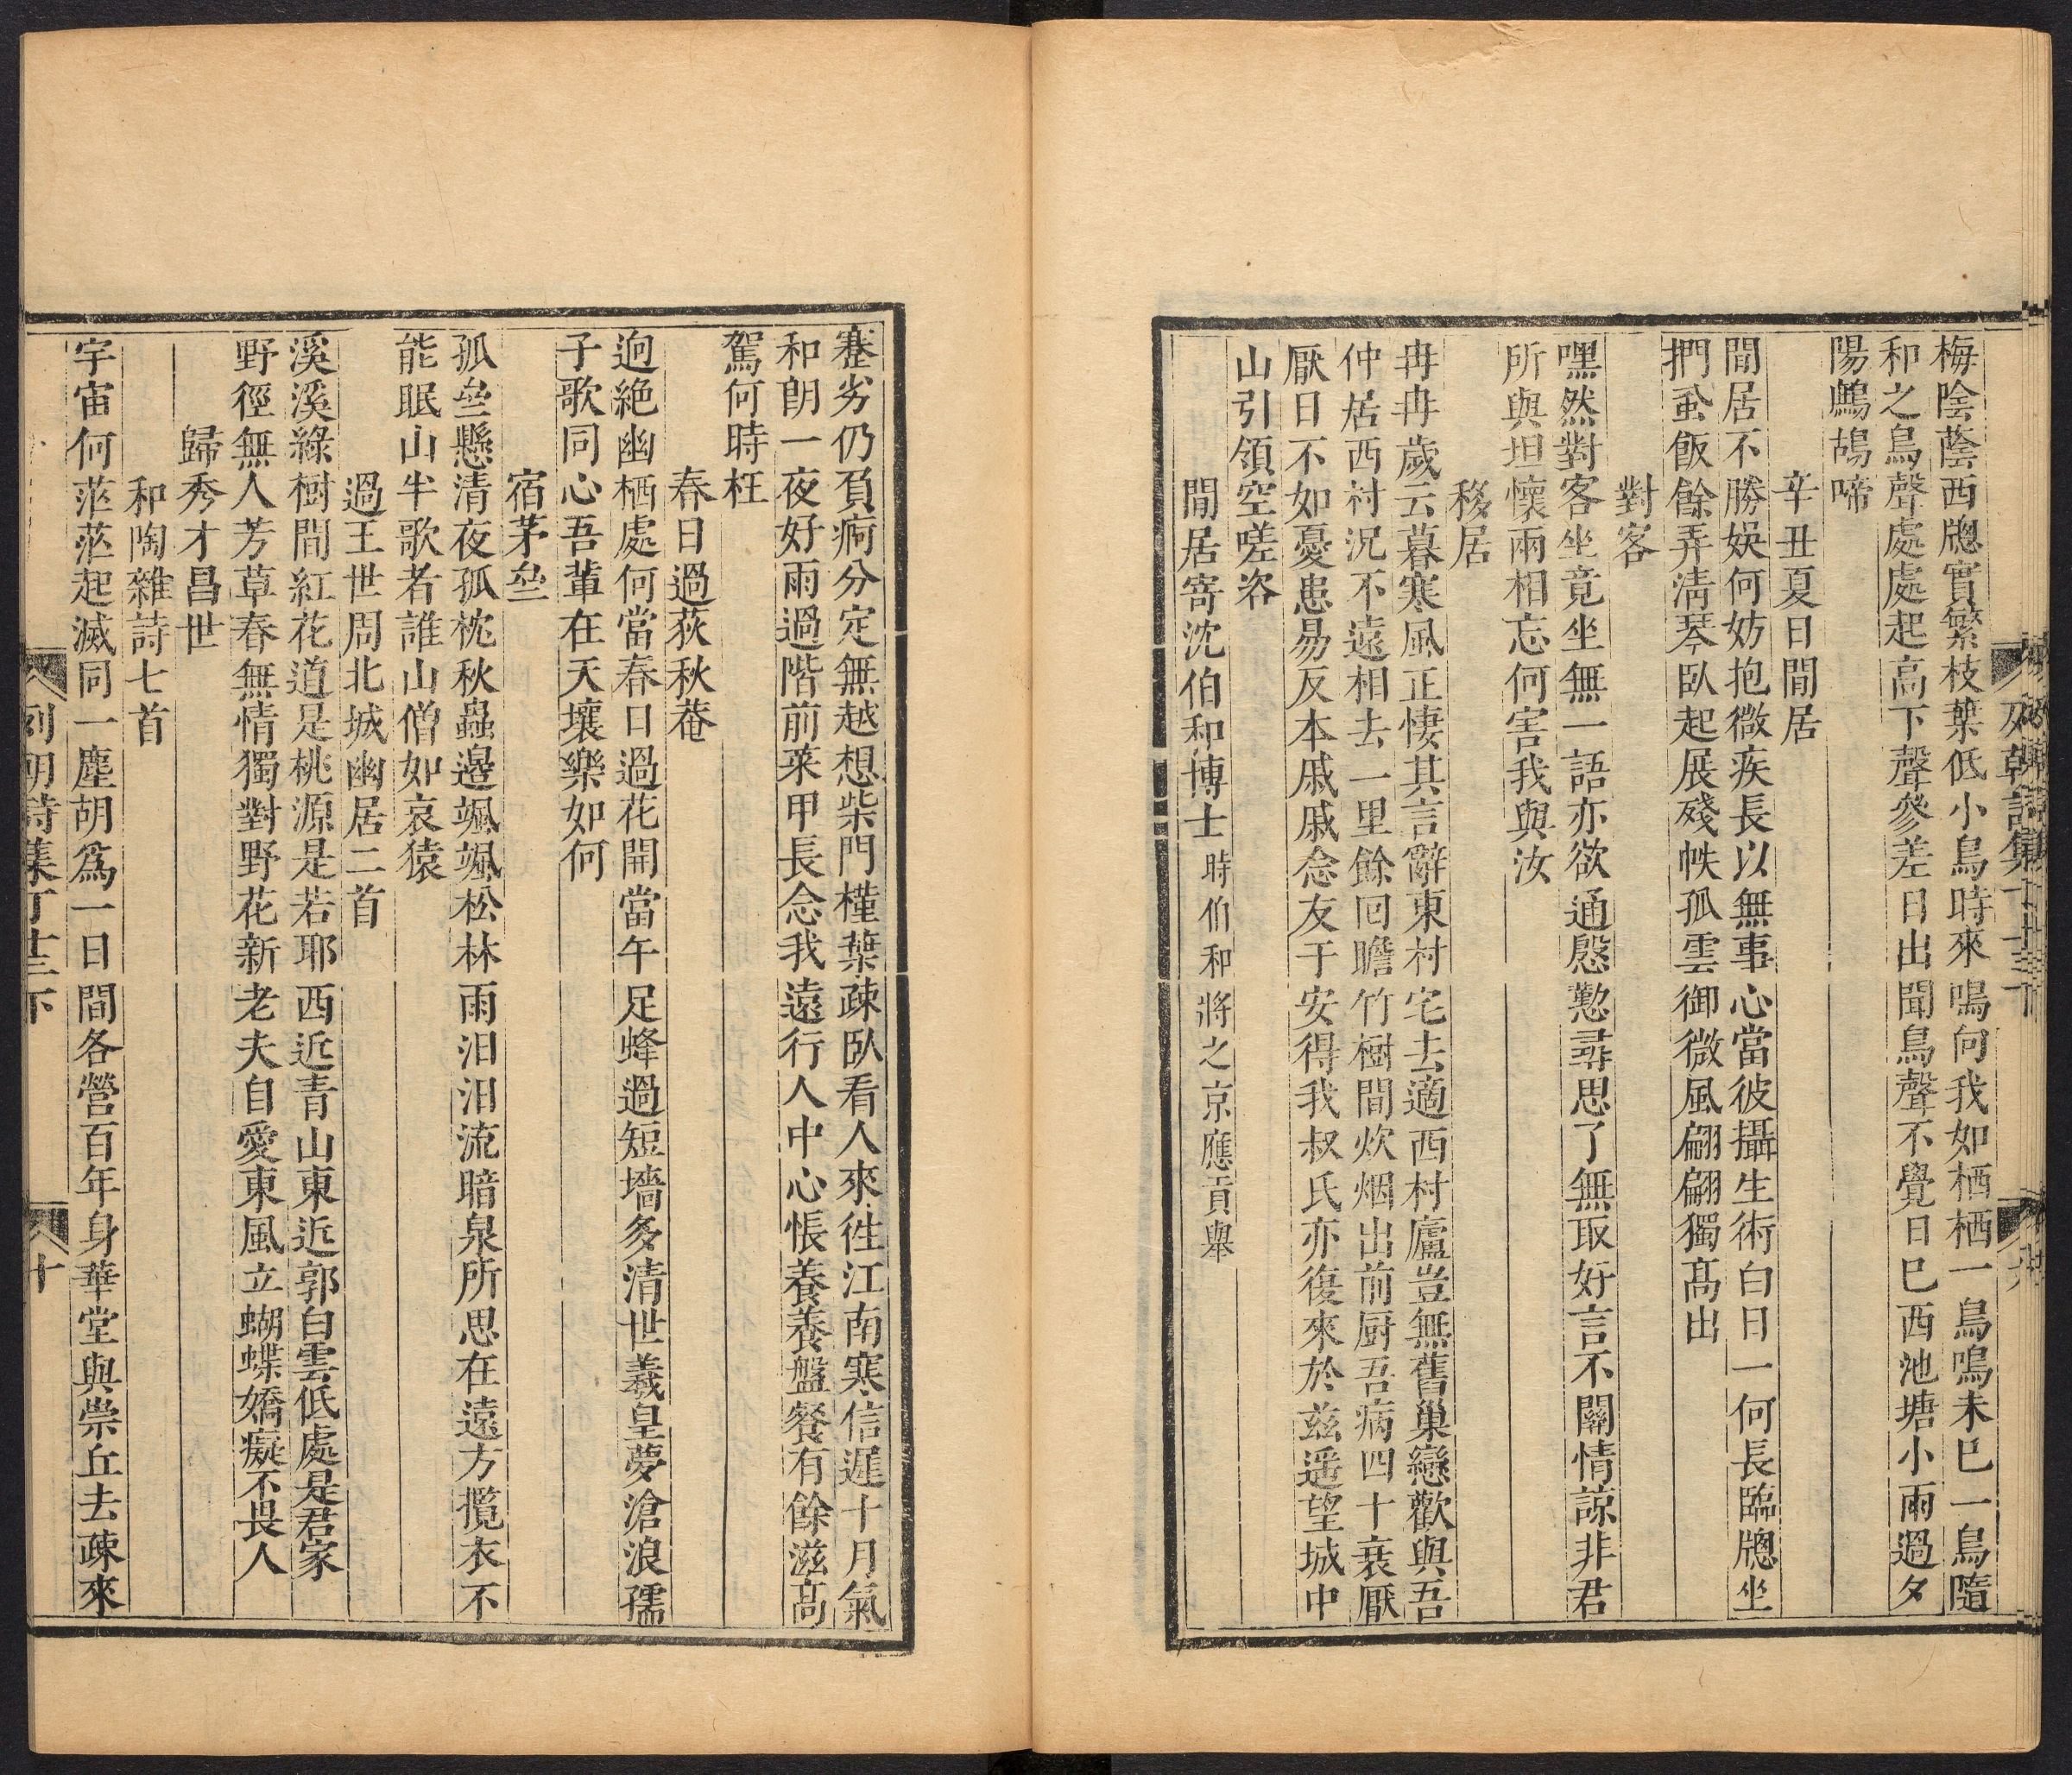 梅陰蔭西牕實繁枝葉低小鳥時來鳴向我如栖栖一鳥鳴未巳一鳥隨
和之鳥聲處處起高下聲參差日出聞鳥聲不覺日巳西池塘小雨過夕
陽鷓鴣啼
辛丑夏日閒居
閒居不勝娛何妨抱微疾長以無事心當彼攝生術白日一何長臨牕坐
捫虱飯餘弄淸琴臥起展殘帙孤雲御微風翩翩獨髙出
對客
嘿然對客坐竟坐無一語亦欲通慇懃尋思了無取好言不關情諒非君
所與坦懷兩相忘何害我與汝
移居
冉冉歲云暮寒風正悽其言辭東村宅去適西村廬豈無舊巢戀歡與吾
仲居西村況不遠相去一里餘回瞻竹樹間炊烟出前厨吾病四十衰厭
厭日不如憂患易反本戚戚念友于安得我叔氏亦復來於兹遥望城中
山引領空嗟咨
閒居寄沈伯和博士 時伯和將之京應貢舉
蹇劣仍負痾分定無越想柴門槿葉疎臥看人來徃江南寒信遲十月氣
和朗一夜好雨過階前菜甲長念我遠行人中心悵養養盤餐有餘滋高
駕何時枉
春日過荻秋菴
逈絶幽栖處何當春日過花開當午足蜂過短墻多清世羲皇夢滄浪孺
子歌同心吾輩在天壤樂如何
宿茅㘴
孤㘴懸清夜孤枕秋蟲邉颯颯松林雨汨汨流暗泉所思在遠方攬衣不
能眠山半歌者誰山僧如哀猿
過王世周北城幽居二首
溪溪綠樹間紅花道是桃源是若耶西近青山東近郭白雲低處是君家
野徑無人芳草春無情獨對野花新老夫自愛東風立蝴蝶嬌癡不畏人
歸秀才昌世
和陶雜詩七首
宇宙何茫茫起滅同一塵胡爲一日間各營百年身華堂與崇丘去疎來
列朝詩集丁十三下
十